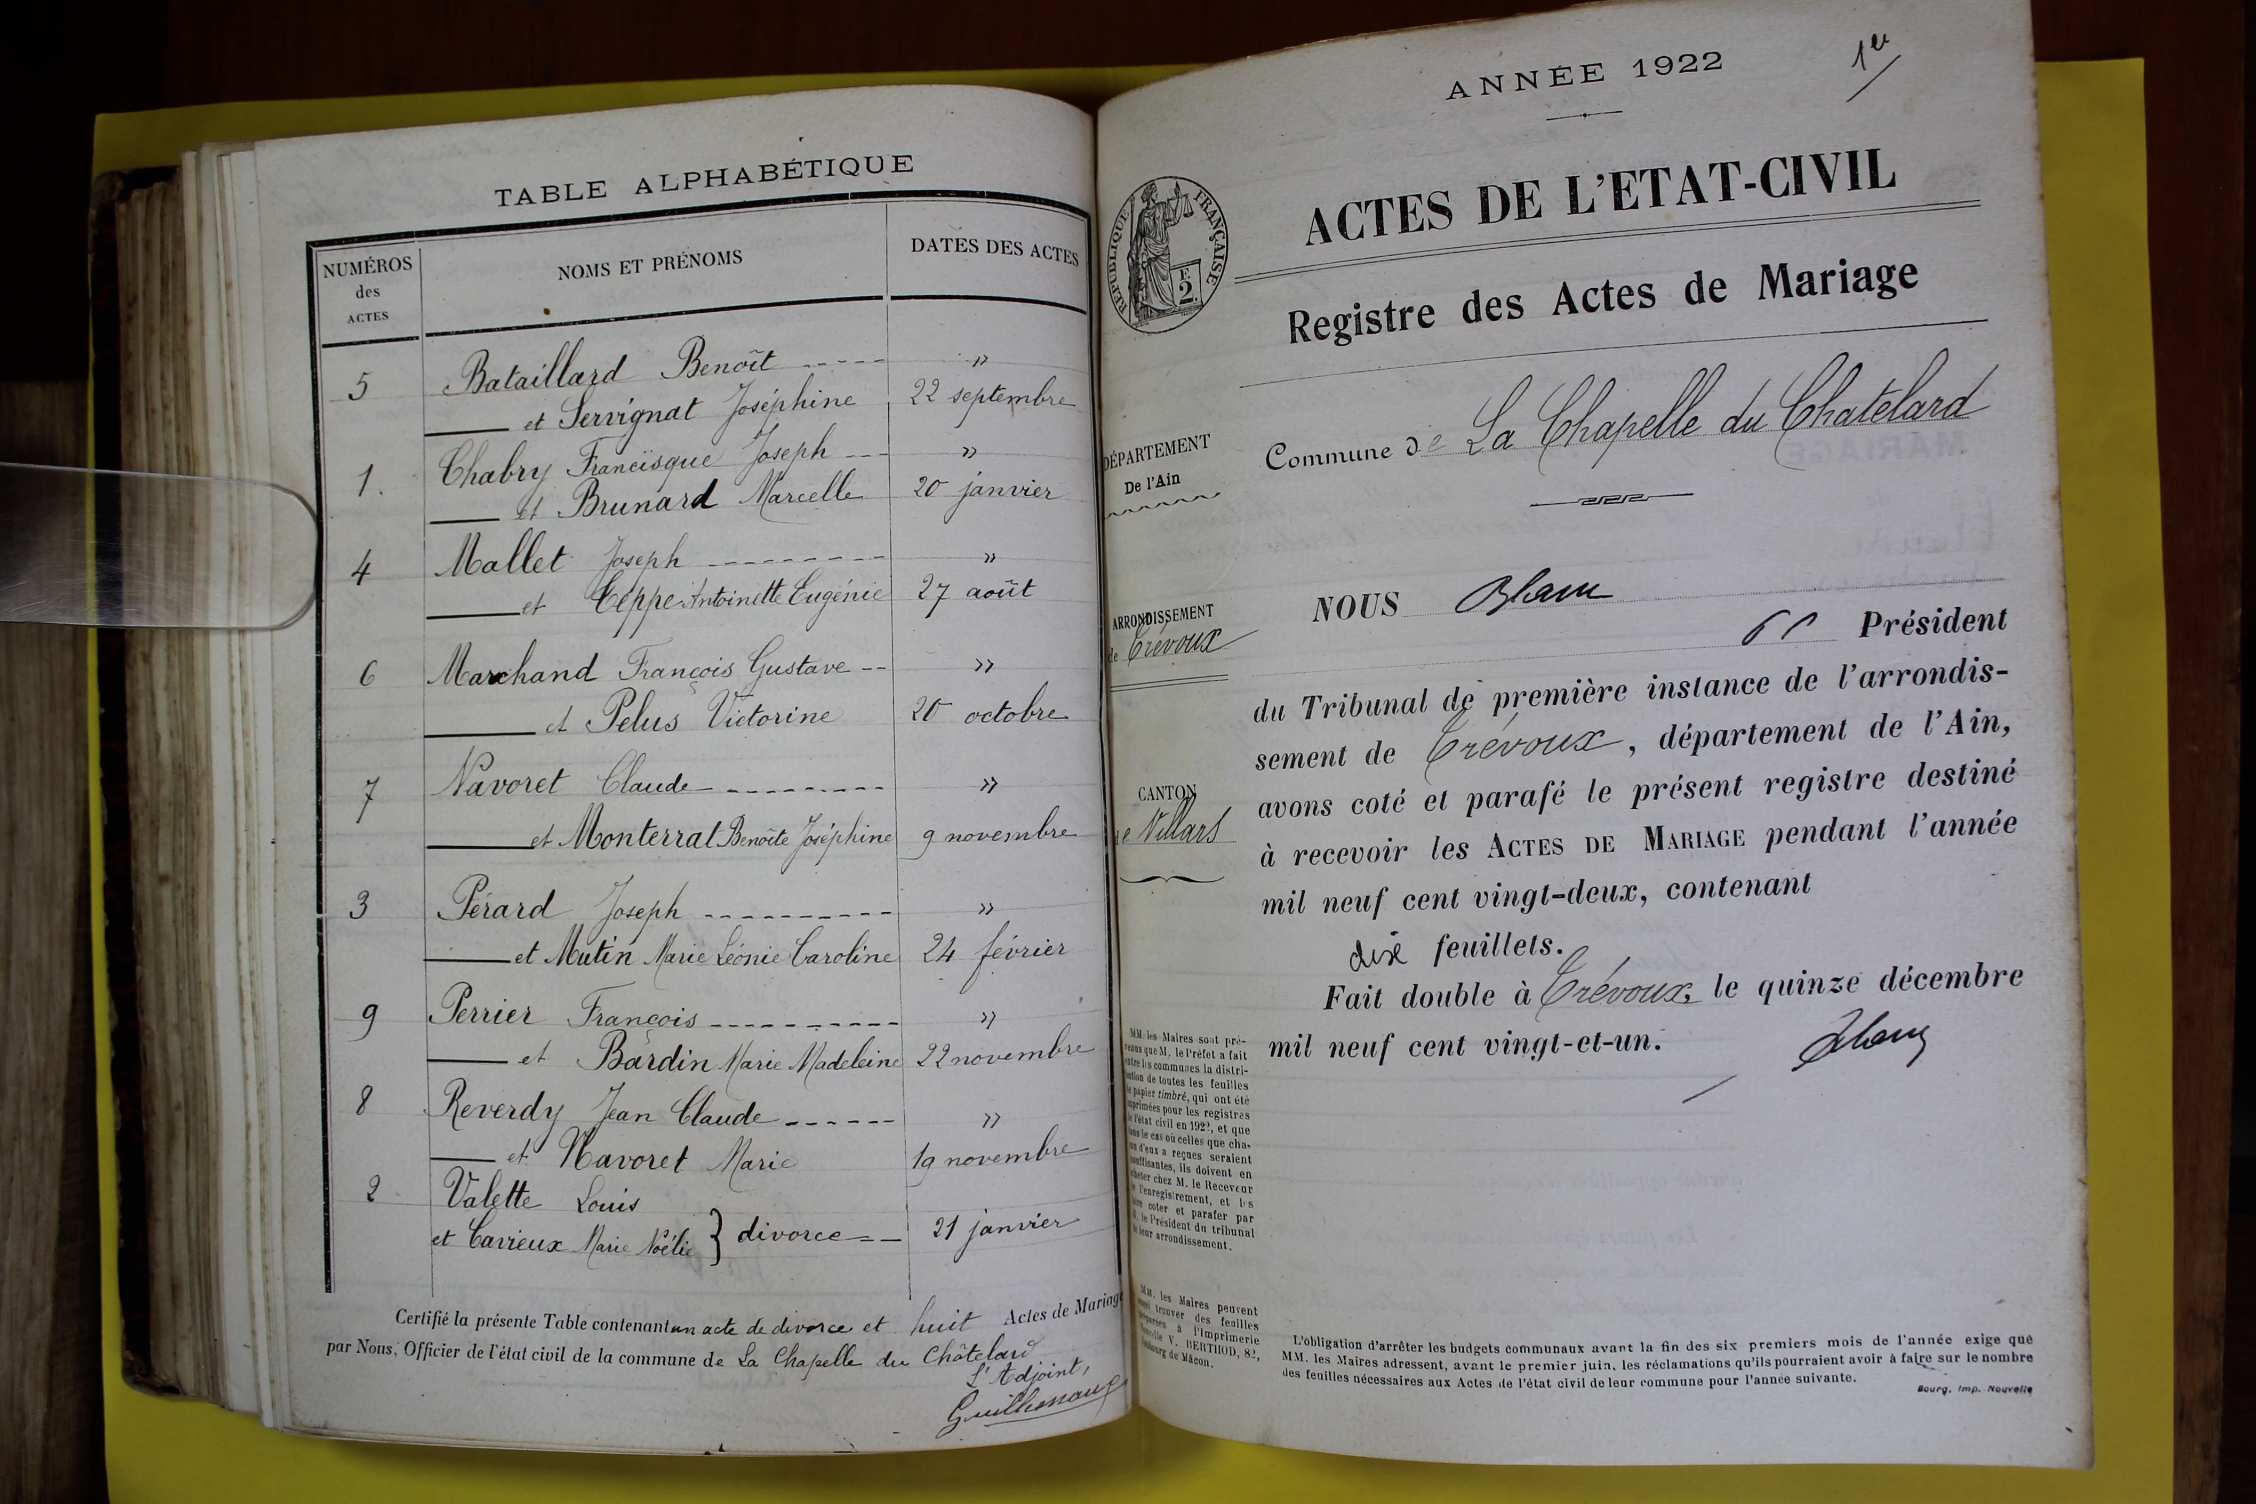 TABLE ALPHABÉTIQUE
NUMÉROS
des
ACTES
NOMS ET PRÉNOMS
DATES DES ACTES
5 Bataillard Benoît »
et Servignat Joséphine 22 septembre
1. Chabry Francisque Joseph »
et Brunard Marcelle 20 janvier
4 Mallet Joseph »
et Teppe Antoinette Eugénie 27 août
6 Marchand François Gustave »
et Pelus Victorine 20 octobre
7 Navoret Claude »
et Monterrat Benoîte Joséphine 9 novembre
3 Pérard Joseph »
et Mutin Marie Léonie Caroline 24 février
9 Perrier François »
et Bardin Marie Madeleine 22 novembre
8 Reverdy Jean Claude »
et Navoret Marie 19 novembre
2 Valette Louis
et Cavieux Marie Noélie } divorce 21 janvier
Certifié la présente Table contenant un acte de divorce et huit Actes de Mariage
par Nous, Officier de l'état civil de la commune de La Chapelle du Châtelard
L'Adjoint,
ANNÉE 1922
1er
ACTES DE L'ETAT-CIVIL
RÉPUBLIQUE FRANÇAISE
F.
2.
Registre des Actes de Mariage
Commune de La Chapelle du Chatelard
DÉPARTEMENT
De l'Ain
ARRONDISSEMENT
de Trévoux
CANTON
de Villars
NOUS
Président
du Tribunal de première instance de l'arrondis-
sement de Trévoux, département de l'Ain,
avons coté et parafé le présent registre destiné
à recevoir les ACTES DE MARIAGE pendant l'année
mil neuf cent vingt-deux, contenant
dix feuillets.
Fait double à Trévoux, le quinze décembre
mil neuf cent vingt-et-un.
MM. les Maires sont pré-
venus que M. le Préfet a fait
entre les communes la distri-
bution de toutes les feuilles
de papier timbré, qui ont été
imprimées pour les registres
de l'état civil en 1922, et que
dans le cas où celles que cha-
cun d'eux a reçues seraient
insuffisantes, ils doivent en
acheter chez M. le Receveur
de l'enregistrement, et les
faire coter et parafer par
M. le Président du tribunal
de leur arrondissement.
MM. les Maires peuvent
aussi trouver des feuilles
préparées à l'Imprimerie
Nouvelle V. BERTHOD, 82,
faubourg de Mâcon.
L'obligation d'arrêter les budgets communaux avant la fin des six premiers mois de l'année exige que
MM. les Maires adressent, avant le premier juin, les réclamations qu'ils pourraient avoir à faire sur le nombre
des feuilles nécessaires aux Actes de l'état civil de leur commune pour l'année suivante.
Bourg. Imp. Nouvelle